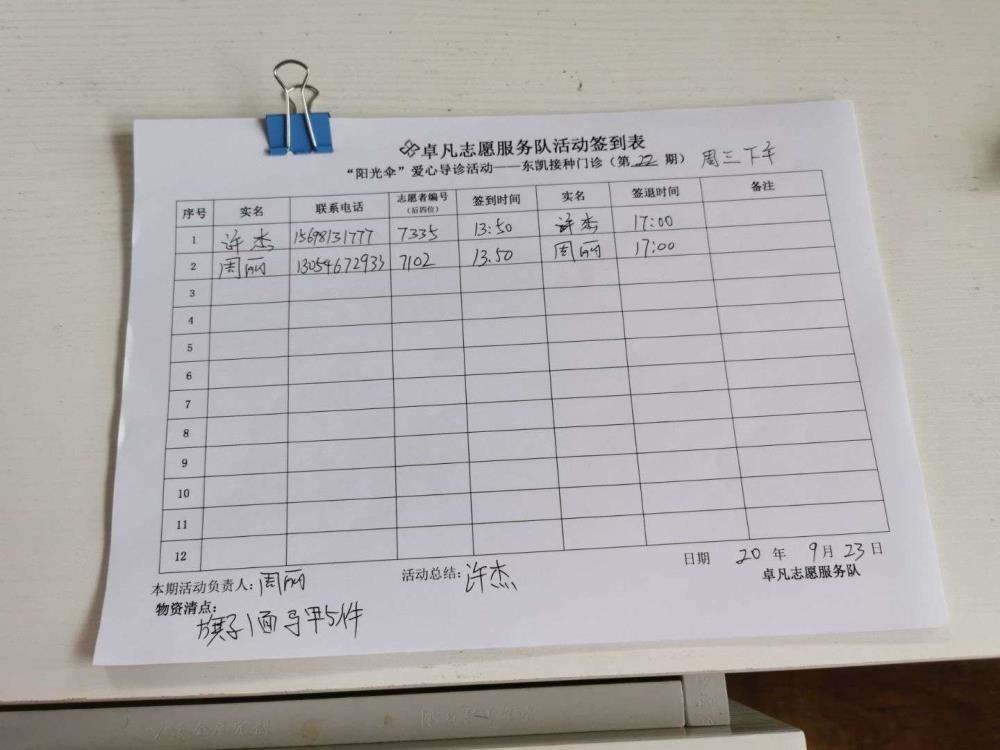 卓凡志愿服务队活动签到表
“阳光伞”爱心导诊活动——东凯接种门诊（第22期） 周三下午
序号 实名 联系电话 志愿者编号（后四位） 签到时间 实名 签退时间 备注
1 许杰 15698131777 7335 13:50 许杰 17:00
2 周丽 13054672933 7102 13.50 周丽 17:00
3
4
5
6
7
8
9
10
11
12
日期 20年9月23日
本期活动负责人：周丽 活动总结：许杰 卓凡志愿服务队
物资清点：
旗子1面 马甲5件